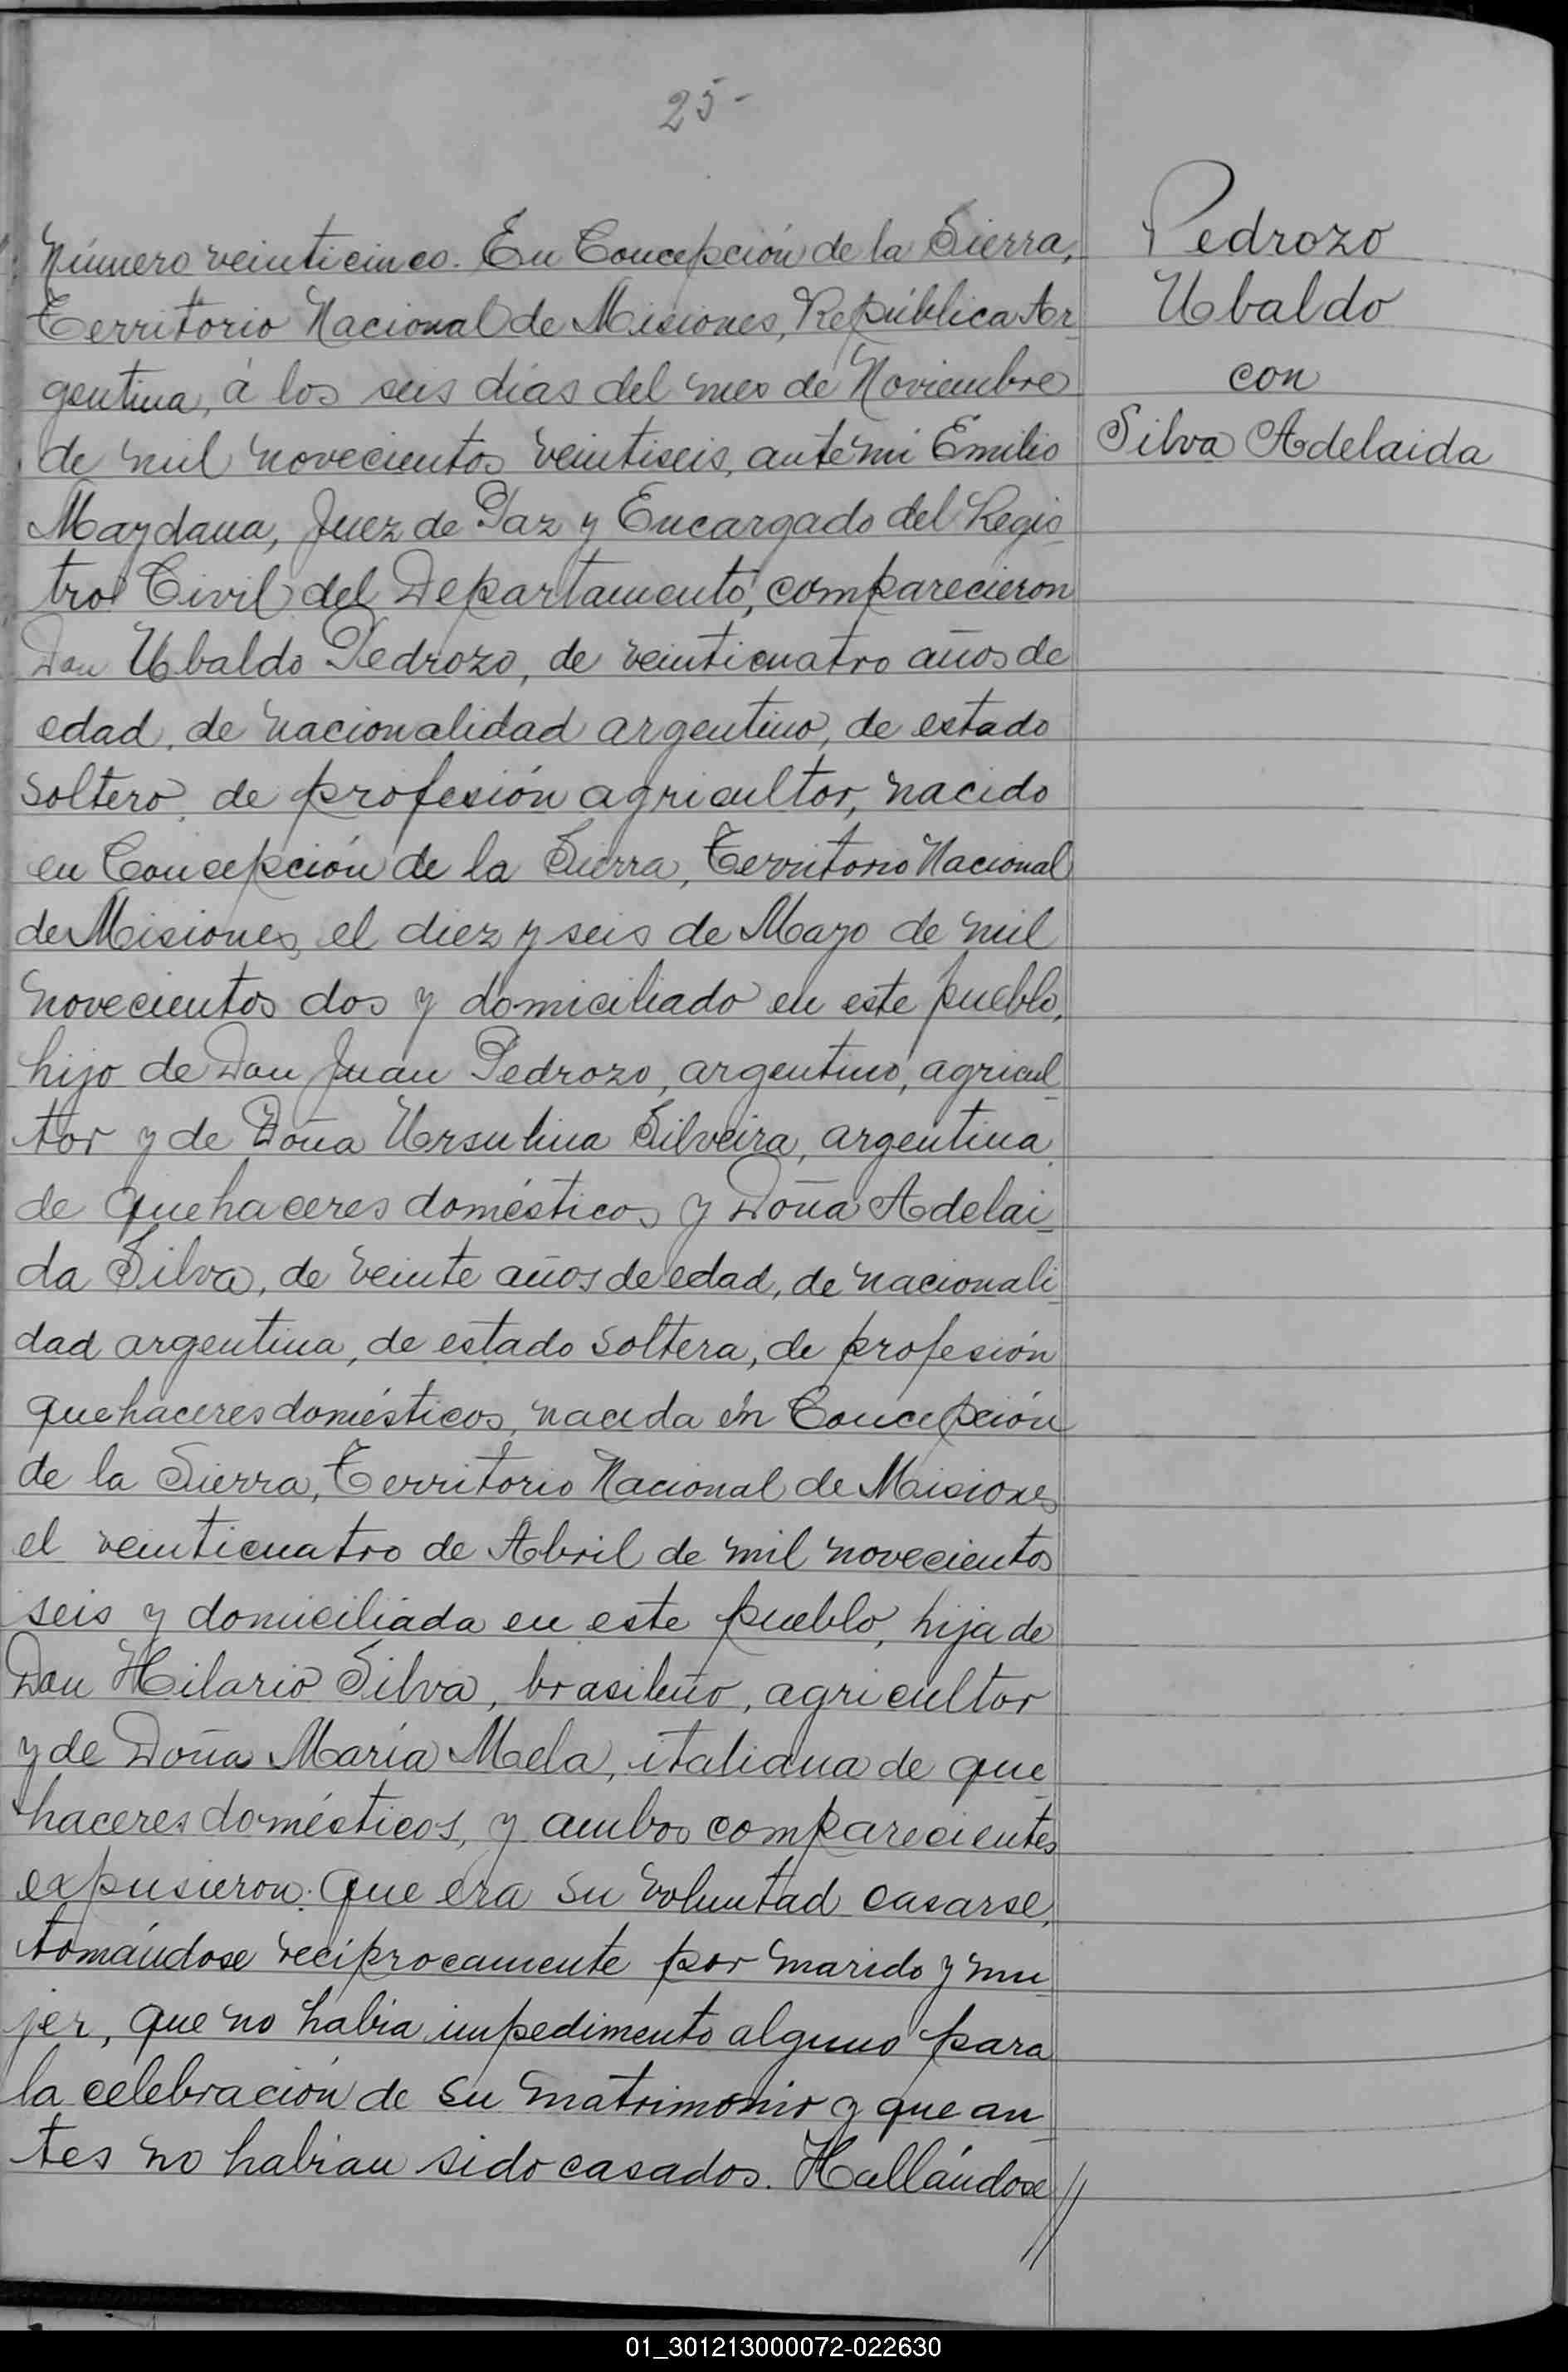 25-
Número veinticinco. En Concepción de la Sierra,
Territorio Nacional de Misiones, República Ar
gentina, á los seis días del mes de Noviembre
de mil novecientos veintiseis, ante mi Emilio
Maydana, Juez de Paz y Encargado del Regis
tro Civil del Departamento, comparecieron
Don Ubaldo Pedrozo, de veinticuatro años de
edad, de nacionalidad argentino, de estado
soltero, de profesión agricultor, nacido
en Concepción de la Sierra, Territorio Nacional
de Misiones, el diez y seis de Mayo de mil
novecientos dos y domiciliado en este pueblo,
hijo de Don Juan Pedrozo, argentino, agricul
tor y de Doña Ursulina Silveira, argentina,
de quehaceres domésticos y Doña Adelai
da Silva, de veinte años de edad, de nacionali
dad argentina, de estado soltera, de profesión
quehaceres domésticos, nacida en Concepción
de la Sierra, Territorio Nacional de Misiones
el veinticuatro de Abril de mil novecientos
seis y domiciliada en este pueblo, hija de
Don Hilario Silva, brasileño, agricultor
y de Doña María Mela, italiana de que
haceres domésticos, y ambos comparecientes
expusieron: Que era su voluntad casarse,
tomándose recíprocamente por marido y mu
jer, que no habia impedimento alguno para
la celebración de su matrimonio y que an
tes no habian sido casados. Hallándose//
Pedrozo
Ubaldo
con
Silva Adelaida
01_301213000072-022630